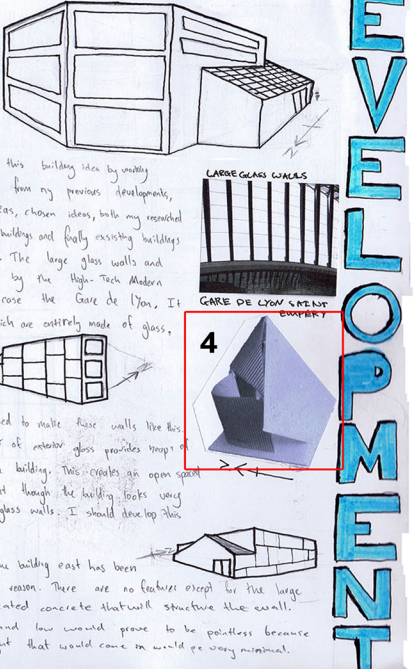 this building idea by working
from my previous developments,
eas, chosen ideas, both my researched
buildings and finally exsisting buildings
. The large glass walls and
by the High-Tech Modern
case the Gare de lyon. It
ich are entirely made of glass.
LARGE GLASS WALLS
GARE DE LYON SAINT
EXUPÉRY
4
ed to make these walls like this.
of exterior glass provides heaps of
building. This creates an open
t though the building looks very
glass walls. I should develop this
building east has been
reason. There are no features except for the large
ated concrete that will structure the wall.
and low would prove to be pointless because
that would come in would be very minimal.
EVELOPMENT